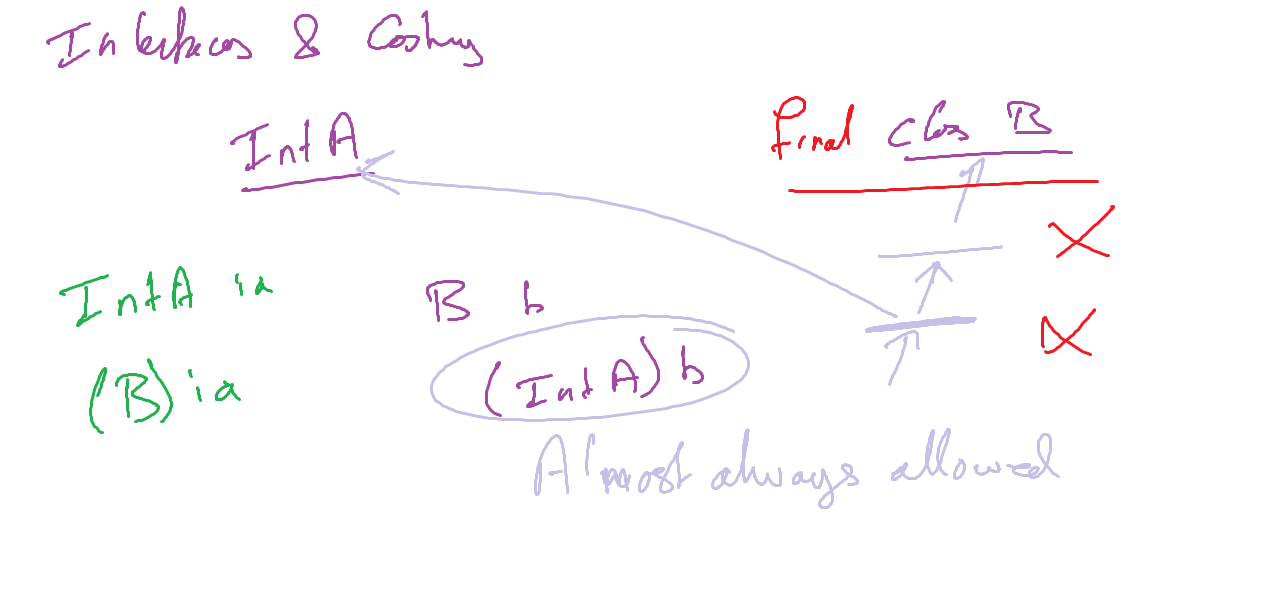 Interfaces & Casting
Int A
final class B
Int A ia
B b
(B) ia
(Int A) b
Almost always allowed